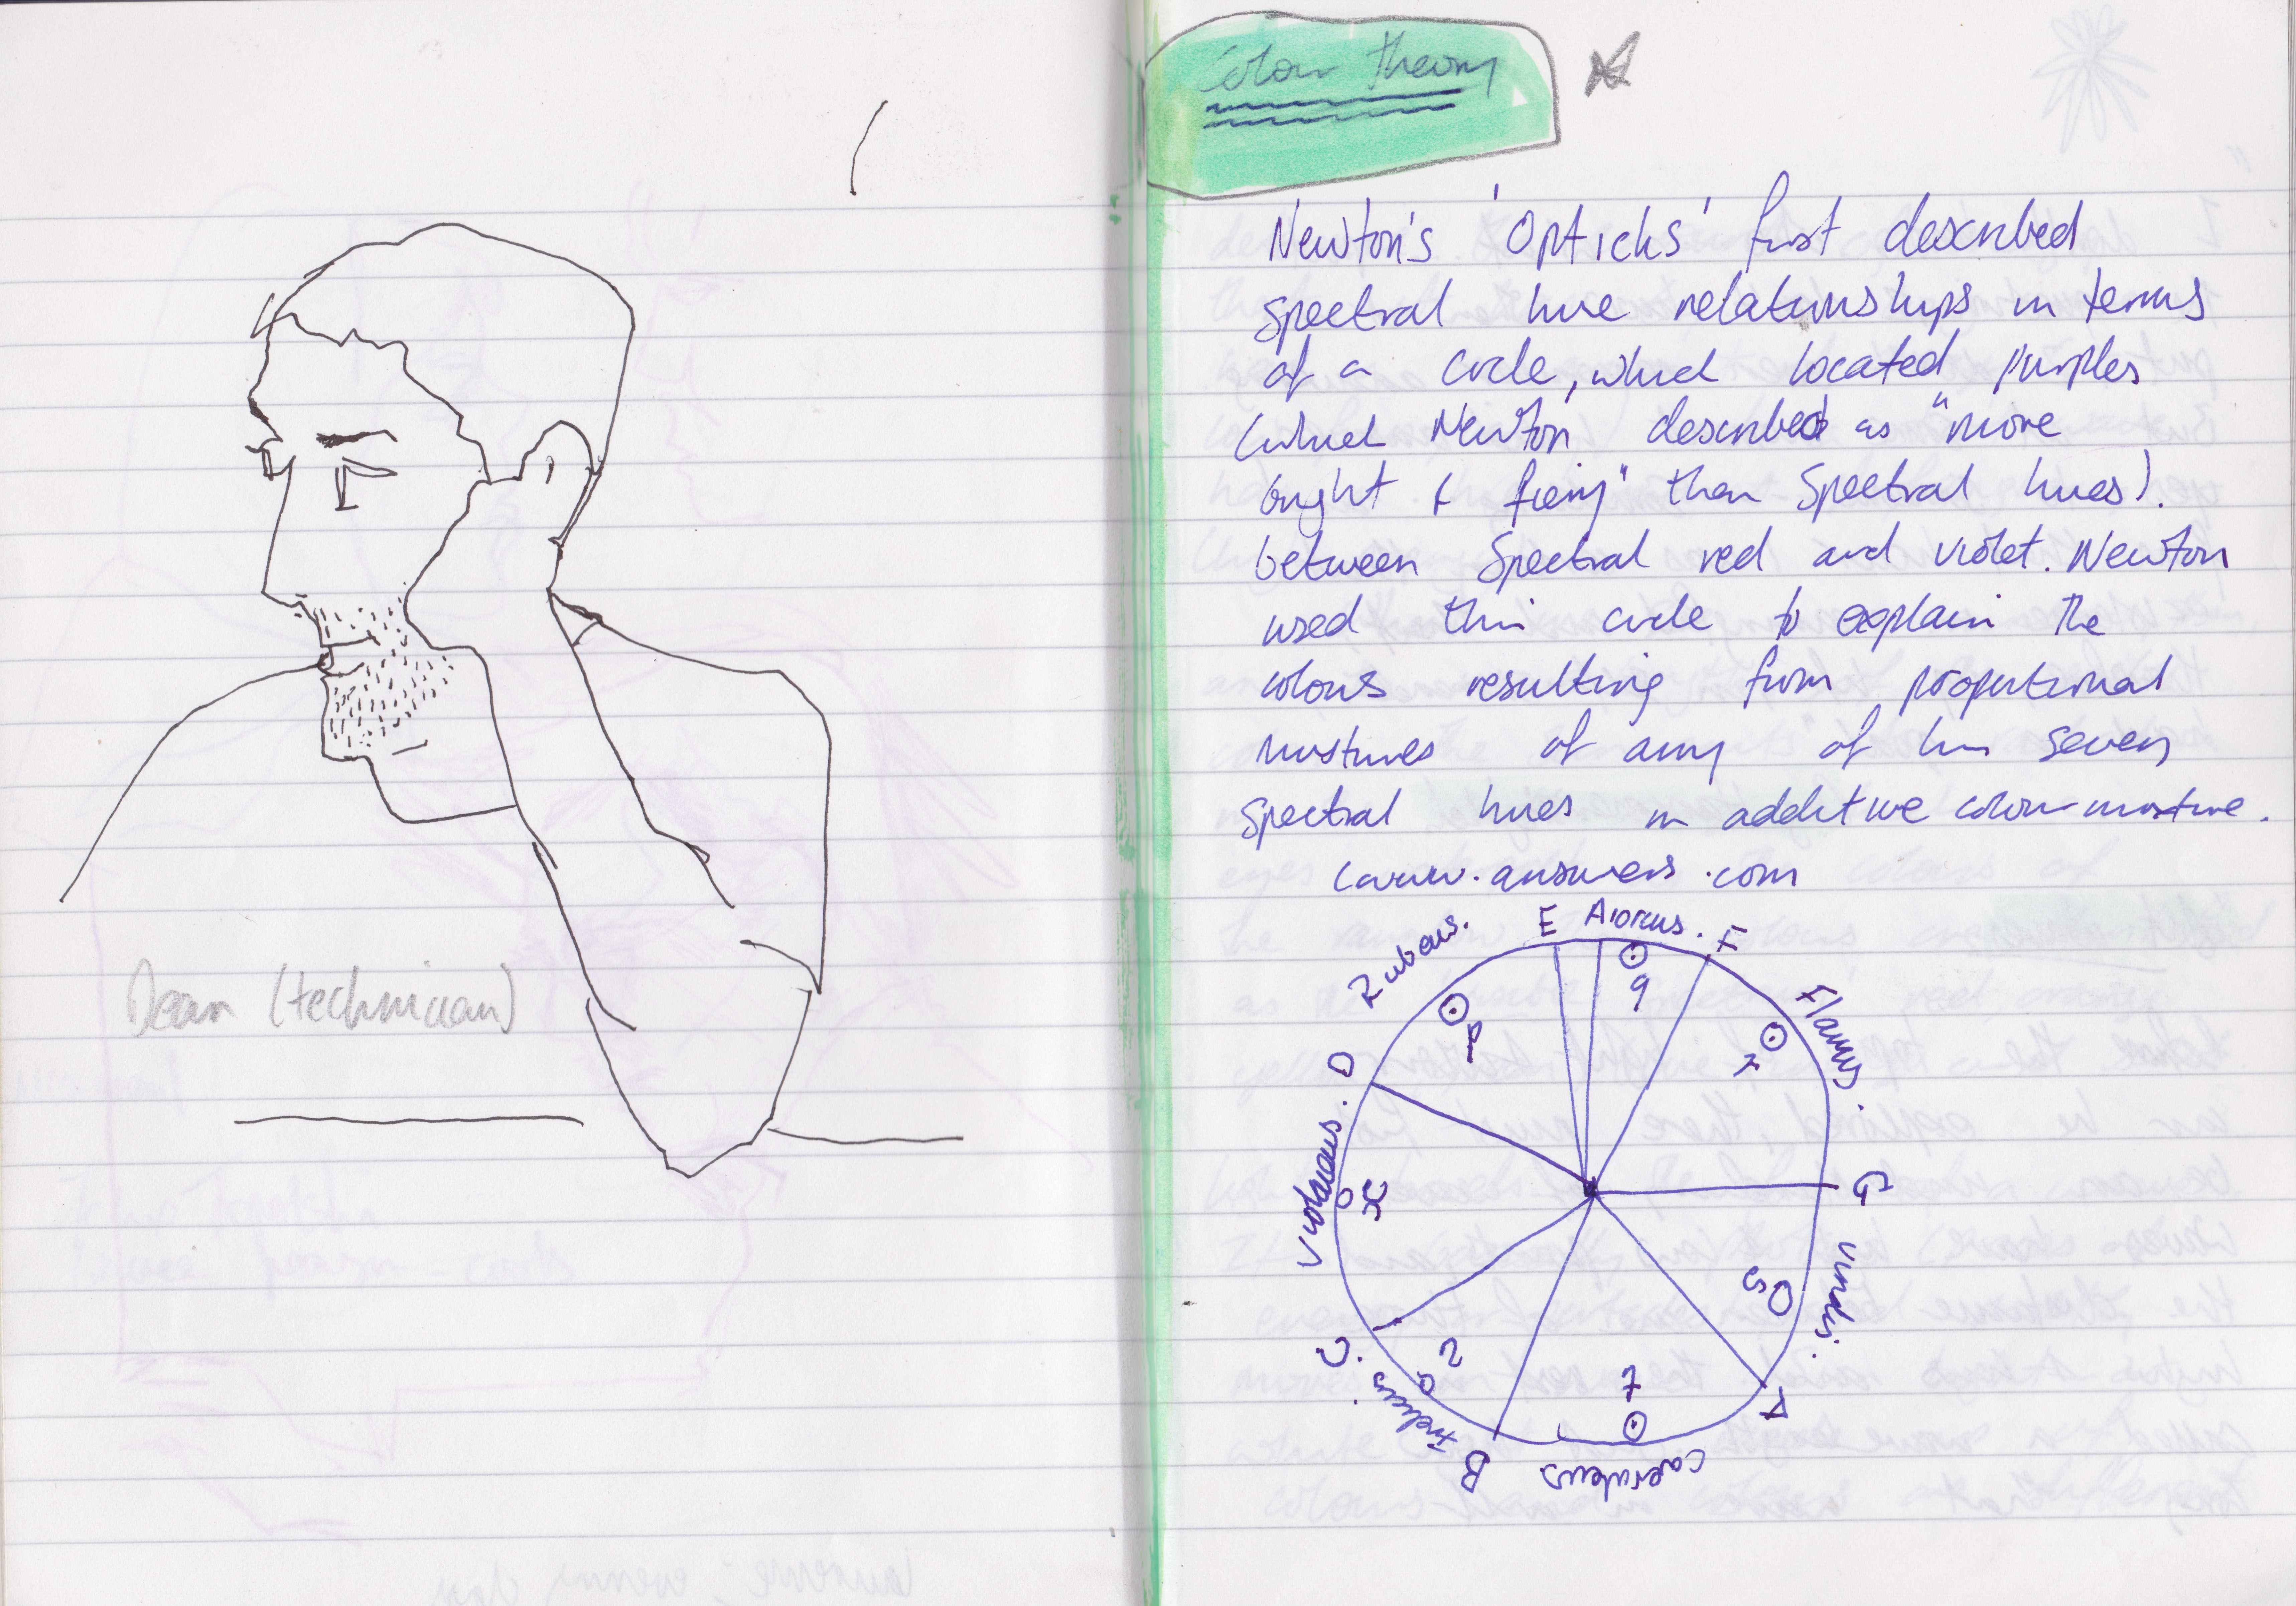 Dean (technician)
Colour Theory
Newton's 'Opticks' first described
spectral hue relationships in terms
of a circle, which located purples
(which Newton described as "more
bright & fiery" than Spectral hues).
between Spectral red and violet. Newton
used this circle to explain the
colours resulting from proportional
mixtures of any of his seven
spectral hues in additive colour mixture.
(www.answers.com
Rubeus.
E
Aiorcus.
F
Flavus.
G
Viridis.
A
Caeruleus
B
C.
Violaceus.
D
P
q
r
s
t
x